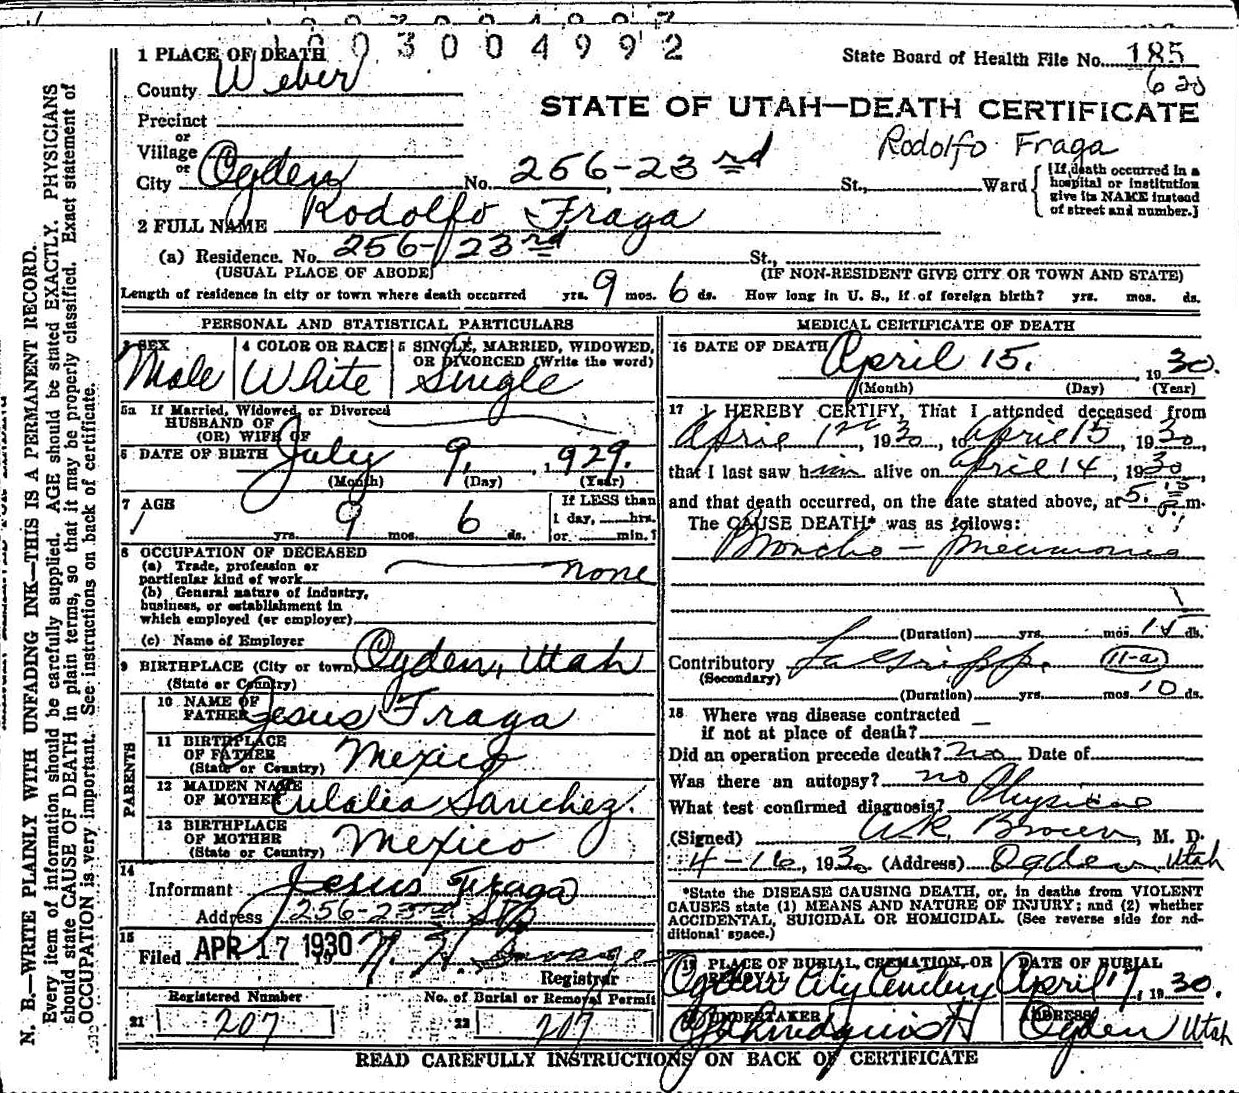 003004992
State Board of Health File No. 185
620
1 PLACE OF DEATH
County Weber
STATE OF UTAH—DEATH CERTIFICATE
Precinct
or
Village
or
Rodolfo Fraga
City Ogden No. 256-23rd St., Ward
[If death occurred in a hospital or institution give its NAME instead of street and number.]
2 FULL NAME Rodolfo Fraga
(a) Residence. No. 256-23rd St.,
(USUAL PLACE OF ABODE) (IF NON-RESIDENT GIVE CITY OR TOWN AND STATE)
Length of residence in city or town where death occurred yrs. 9 mos. 6 ds. How long in U. S., if of foreign birth? yrs. mos. ds.
PERSONAL AND STATISTICAL PARTICULARS
3 SEX Male
4 COLOR OR RACE White
5 SINGLE, MARRIED, WIDOWED, OR DIVORCED (Write the word) Single
5a If Married, Widowed, or Divorced
HUSBAND OF
(OR) WIFE OF
6 DATE OF BIRTH July 9, 1929.
(Month) (Day) (Year)
7 AGE
yrs. 9 mos. 6 ds.
If LESS than
1 day, hrs.
or min.?
8 OCCUPATION OF DECEASED
(a) Trade, profession or
particular kind of work none
(b) General nature of industry,
business, or establishment in
which employed (or employer)
(c) Name of Employer
9 BIRTHPLACE (City or town) Ogden, Utah
(State or Country)
PARENTS
10 NAME OF
FATHER Jesus Fraga
11 BIRTHPLACE
OF FATHER
(State or Country) Mexico
12 MAIDEN NAME
OF MOTHER Eulalia Sanchez.
13 BIRTHPLACE
OF MOTHER
(State or Country) Mexico
14
Informant Jesus Fraga
Address 256-23rd St
15
Filed APR 17 1930 N. H. Savage
Registrar
Registered Number
21 207
No. of Burial or Removal Permit
22 207
MEDICAL CERTIFICATE OF DEATH
16 DATE OF DEATH April 15, 1930.
(Month) (Day) (Year)
17 I HEREBY CERTIFY, That I attended deceased from
April 1st, 1930, to April 15, 1930,
that I last saw him alive on April 14, 1930,
and that death occurred, on the date stated above, at 5. m.
The CAUSE DEATH* was as follows:
Broncho-pneumonia
(Duration) yrs. mos. 15 ds.
Contributory La Gripp. 11-a
(Secondary)
(Duration) yrs. mos. 10 ds.
18 Where was disease contracted
if not at place of death?
Did an operation precede death? no Date of
Was there an autopsy? no
What test confirmed diagnosis? Physical
(Signed) Brown, M. D.
4-16, 1930 (Address) Ogden Utah
*State the DISEASE CAUSING DEATH, or, in deaths from VIOLENT
CAUSES state (1) MEANS AND NATURE OF INJURY; and (2) whether
ACCIDENTAL, SUICIDAL OR HOMICIDAL. (See reverse side for ad-
ditional space.)
19 PLACE OF BURIAL, CREMATION, OR
REMOVAL
Ogden City Cemetery
DATE OF BURIAL
April 17, 1930.
20 UNDERTAKER
Lindquist
ADDRESS
Ogden Utah
READ CAREFULLY INSTRUCTIONS ON BACK OF CERTIFICATE
N. B.—WRITE PLAINLY WITH UNFADING INK—THIS IS A PERMANENT RECORD.
Every item of information should be carefully supplied. AGE should be stated EXACTLY. PHYSICIANS
should state CAUSE OF DEATH in plain terms, so that it may be properly classified. Exact statement of
OCCUPATION is very important. See instructions on back of certificate.